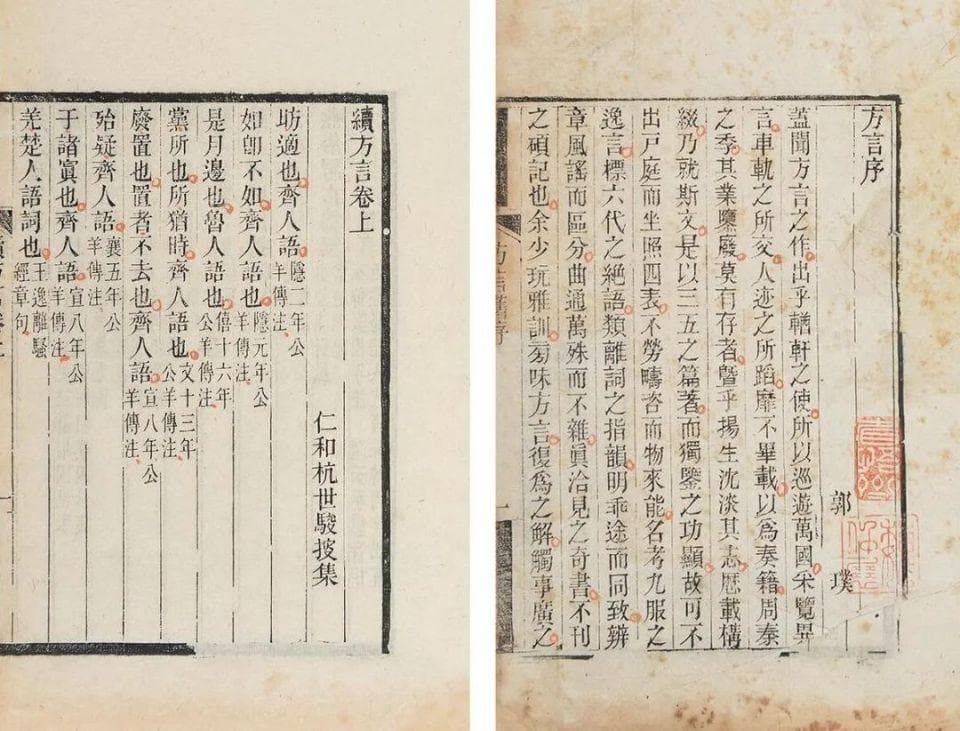 方言序
郭璞
蓋聞方言之作出乎輶軒之使所以巡遊萬國采覽異
言車軌之所交人迹之所蹈靡不畢載以爲奏籍周秦
之季其業隳廢莫有存者暨乎揚生沈淡其志歷載構
綴乃就斯文是以三五之篇著而獨鑒之功顯故可不
出戶庭而坐照四表不勞疇咨而物來能名考九服之
逸言標六代之絕語類離詞之指韻明乖途而同致辨
章風謠而區分曲通萬殊而不雜眞洽見之奇書不刊
之碩記也余少玩雅訓旁味方言復爲之解觸事廣之
續方言卷上
仁和杭世駿披集
昉適也齊人語隱二年公羊傳注
如卽不如齊人語也隱元年公羊傳注
是月邊也魯人語也僖十六年公羊傳注
黨所也所猶時齊人語也文十三年公羊傳注
廢置也置者不去也齊人語宣八年公羊傳注
殆疑齊人語襄五年公羊傳注
于諸寘也齊人語宣八年公羊傳注
羌楚人語詞也王逸離騷經章句